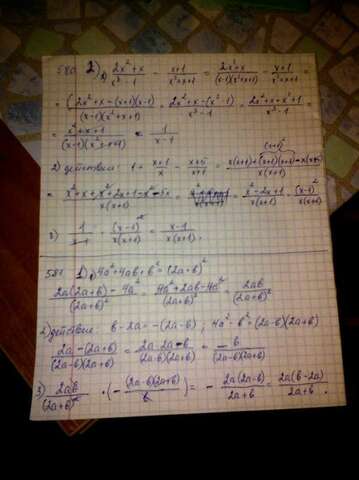 580 2) 1) (2x²+x)/(x³-1) - (x+1)/(x²+x+1) = (2x²+x)/((x-1)(x²+x+1)) - (x+1)/(x²+x+1) =
= (2x²+x-(x+1)(x-1))/((x-1)(x²+x+1)) = (2x²+x-(x²-1))/(x³-1) = (2x²+x-x²+1)/(x³-1) =
= (x²+x+1)/((x-1)(x²+x+1)) = 1/(x-1)
(x+1)²
2) действие: 1 + (x+1)/x - (x+5)/(x+1) = (x(x+1)+(x+1)(x+1)-x(x+5))/(x(x+1))
= (x²+x+x²+2x+1-x²-5x)/(x(x+1)) = = (x²-2x+1)/(x(x+1)) = (x-1)²/(x(x+1))
3) 1/(x-1) · (x-1)²/(x(x+1)) = (x-1)/(x(x+1)).
581 1) 1) 4a²+4ab+b² = (2a+b)²
(2a(2a+b)-4a²)/(2a+b)² = (4a²+2ab-4a²)/(2a+b)² = 2ab/(2a+b)²
2) действие: b-2a = -(2a-b) ; 4a²-b² = (2a-b)(2a+b)
(2a-(2a+b))/((2a-b)(2a+b)) = (2a-2a-b)/((2a-b)(2a+b)) = -b/((2a-b)(2a+b))
3) 2ab/(2a+b)² · (-(2a-b)(2a+b)/b) = -2a(2a-b)/(2a+b) = 2a(b-2a)/(2a+b).